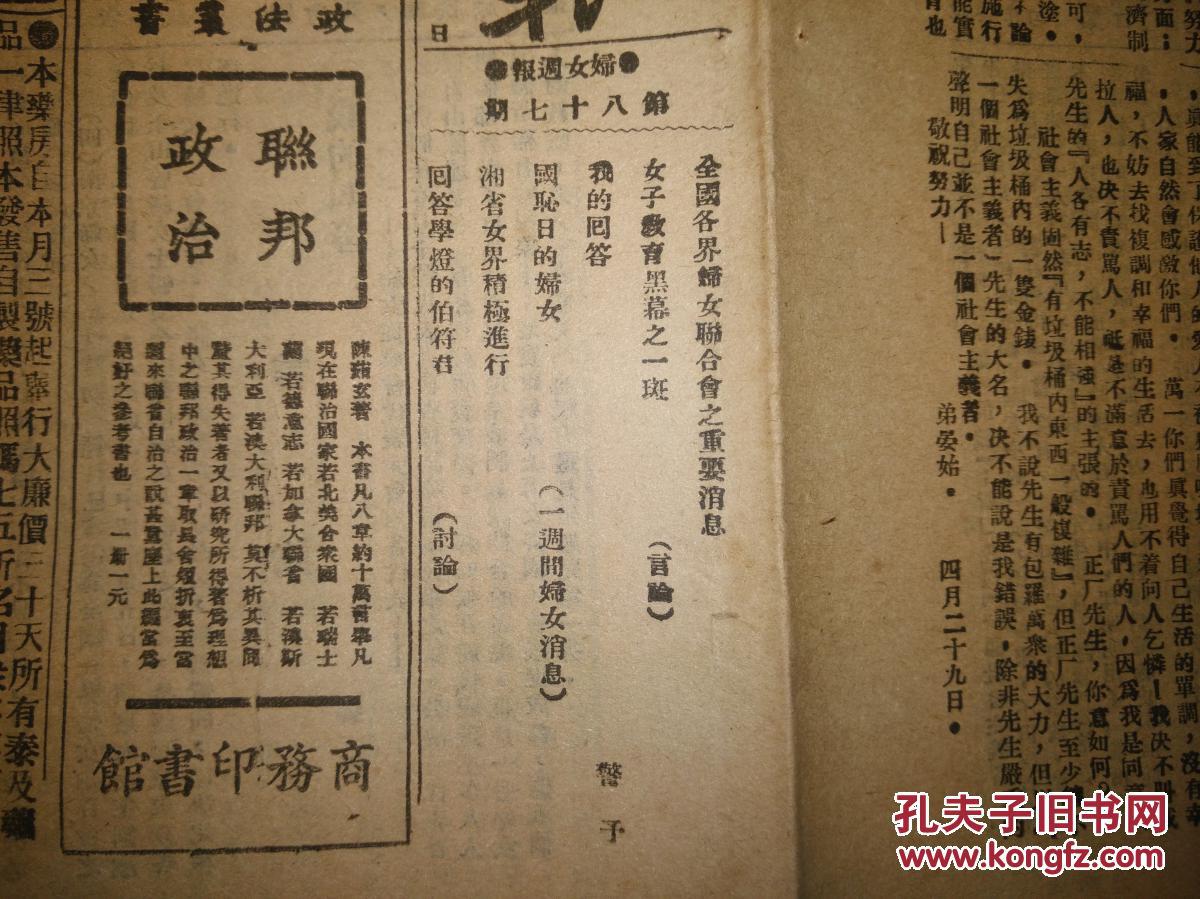 政法叢書
聯邦
政治
陳茹玄著 本書凡八章約十萬言舉凡
現在聯治國家若北美合衆國 若瑞士
若德意志 若加拿大聯省 若澳斯
大利亞 若澳大利聯邦 莫不析其異同
驗其得失著者又以研究所得著爲理想
中之聯邦政治一章取長舍短折衷至當
來聯省自治之說甚囂塵上此編當爲
絕好之參考書也 一册一元
商務印書館
●本藥房自本月三號起舉行大廉價三十天所有泰及
品一律照本發售自製藥品照碼七五折
日
●婦女週報●
第八十七期
全國各界婦女聯合會之重要消息
女子教育黑幕之一斑 (言論)
我的回答 警予
國恥日的婦女
湘省女界積極進行 (一週間婦女消息)
回答學燈的伯符君 (討論)
人家自然會感激你們。 萬一你們眞覺得自己生活的單調,沒有幸
福,不妨去找複調和幸福的生活去,也用不着向人乞憐!我决不
拉人,也决不責罵人,祇是不滿意於責罵人們的人,因爲我是同
先生的『人各有志,不能相強』的主張的。 正厂先生,你意如何?
社會主義固然『有垃圾桶內東西一般複雜』,但正厂先生至少
失爲垃圾桶內的一隻金錶。 我不說先生有包羅萬衆的大力,但
一個社會主義者」先生的大名,决不能說是我錯誤,除非先生嚴
聲明自己並不是一個社會主義者。
敬祝努力! 弟晏始。 四月二十九日。
孔夫子旧书网
www.kongfz.com